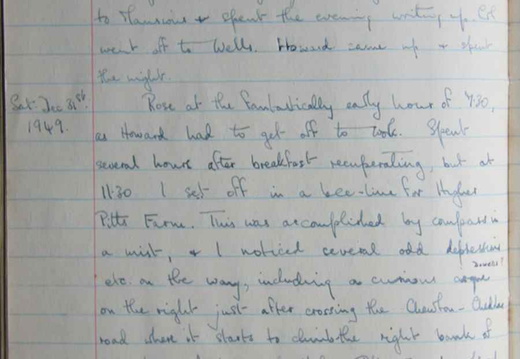 to Mansions & spent the evening writing up. Col
went off to Wells. Howard came up & spent
the night.
Sat. Dec. 31st. 1949. Rose at the fantastically early hour of 7.30,
as Howard had to get off to work. Spent
several hours after breakfast recuperating, but at
11.30 I set off in a bee-line for Higher
Pitts Farm. This was accomplished by compass in
a mist, & I noticed several odd depressions
etc. on the way, including a curious
on the right just after crossing the Chewton-Cheddar
road where it starts to climb the right bank of